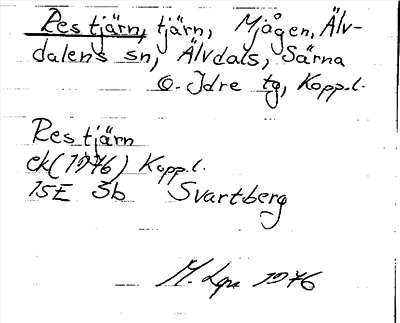 Restjärn, tjärn, Mjågen, Älv-
dalens sn, Älvdals, Särna
o. Idre tg, Kopp.l.
Restjärn
ek (1976) Kopp.l.
15E 3b Svartberg
M. 1976